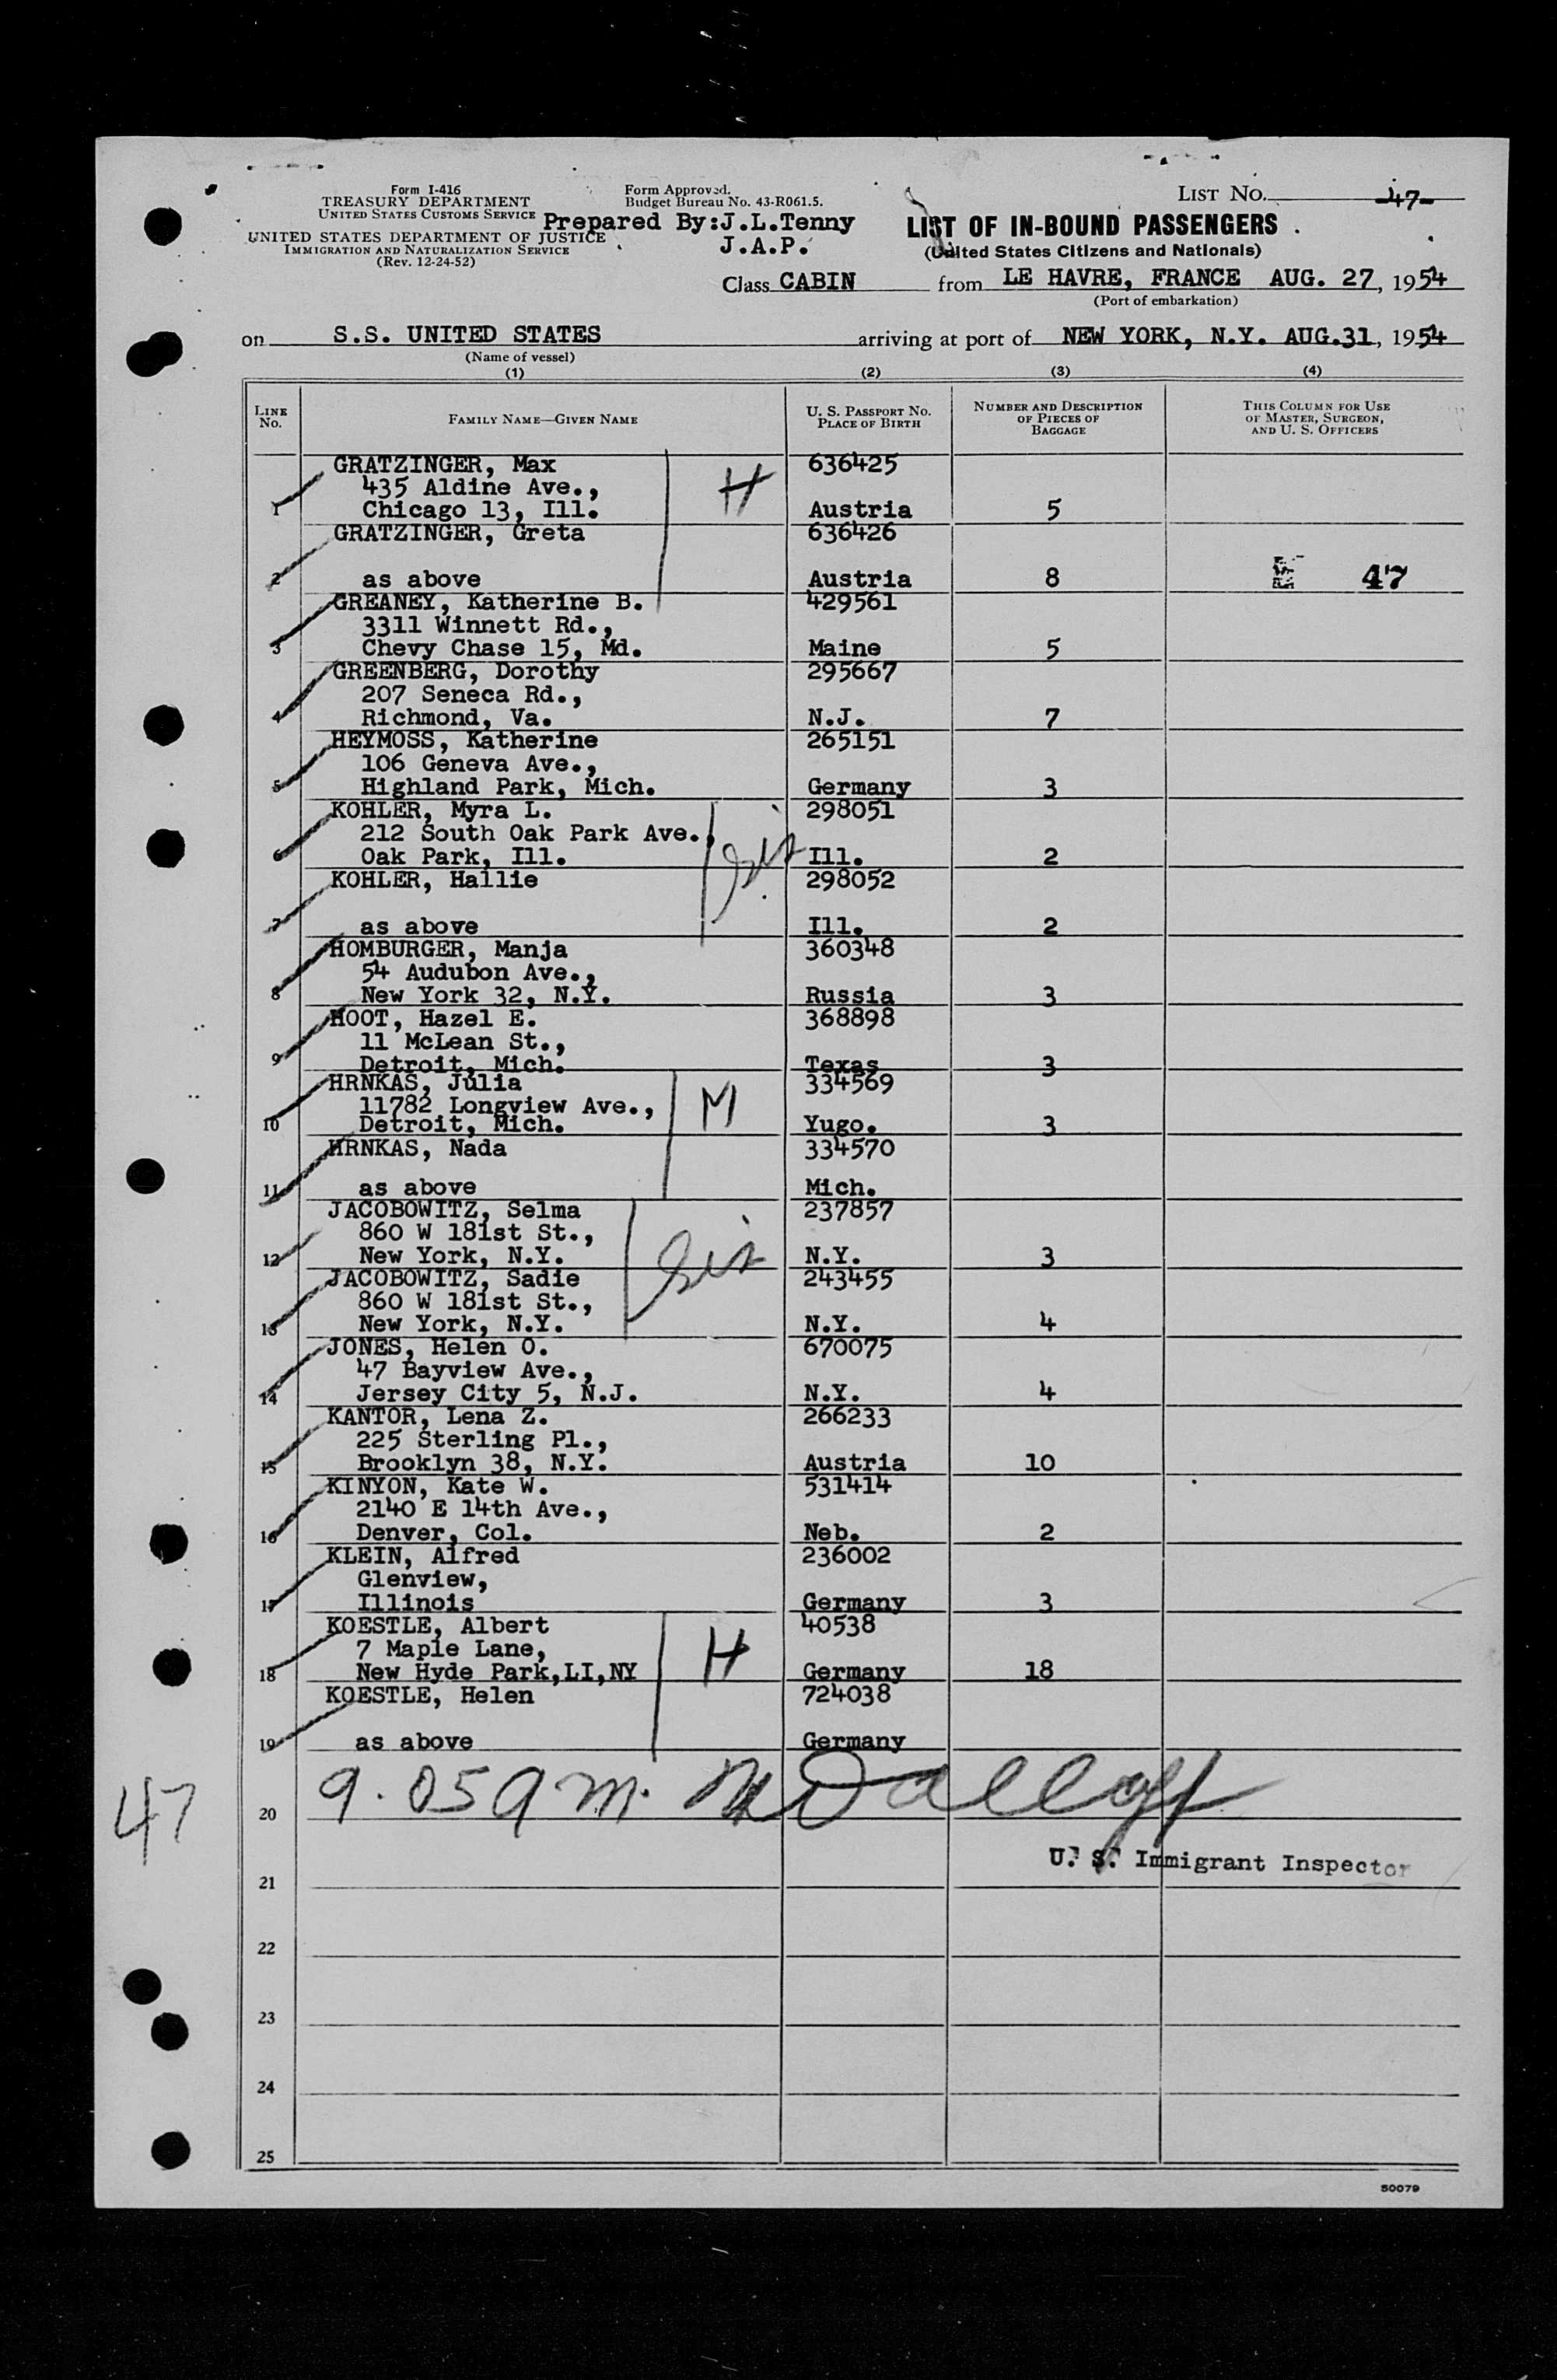 Form I-416
TREASURY DEPARTMENT
UNITED STATES CUSTOMS SERVICE
UNITED STATES DEPARTMENT OF JUSTICE
IMMIGRATION AND NATURALIZATION SERVICE
(Rev. 12-24-52)
Form Approved.
Budget Bureau No. 43-R061.5.
Prepared By:J.L.Tenny
J.A.P.
LIST NO. -47-
LIST OF IN-BOUND PASSENGERS
(United States Citizens and Nationals)
Class CABIN from LE HAVRE, FRANCE AUG. 27, 1954
(Port of embarkation)
on S.S. UNITED STATES arriving at port of NEW YORK, N.Y. AUG.31, 1954
(Name of vessel)
(1) (2) (3) (4)
LINE No. FAMILY NAME—GIVEN NAME U. S. PASSPORT NO. PLACE OF BIRTH NUMBER AND DESCRIPTION OF PIECES OF BAGGAGE THIS COLUMN FOR USE OF MASTER, SURGEON, AND U. S. OFFICERS
GRATZINGER, Max 636425
435 Aldine Ave., H
1 Chicago 13, Ill. Austria 5
GRATZINGER, Greta 636426
2 as above Austria 8 47
GREANEY, Katherine B. 429561
3311 Winnett Rd.,
3 Chevy Chase 15, Md. Maine 5
GREENBERG, Dorothy 295667
207 Seneca Rd.,
4 Richmond, Va. N.J. 7
HEYMOSS, Katherine 265151
106 Geneva Ave.,
5 Highland Park, Mich. Germany 3
KOHLER, Myra L. 298051
212 South Oak Park Ave., sis
6 Oak Park, Ill. Ill. 2
KOHLER, Hallie 298052
7 as above Ill. 2
HOMBURGER, Manja 360348
54 Audubon Ave.,
8 New York 32, N.Y. Russia 3
HOOT, Hazel E. 368898
11 McLean St.,
9 Detroit, Mich. Texas 3
HRNKAS, Julia 334569
11782 Longview Ave., M
10 Detroit, Mich. Yugo. 3
HRNKAS, Nada 334570
11 as above Mich.
JACOBOWITZ, Selma 237857
860 W 181st St.,
12 New York, N.Y. sis N.Y. 3
JACOBOWITZ, Sadie 243455
860 W 181st St.,
13 New York, N.Y. N.Y. 4
JONES, Helen O. 670075
47 Bayview Ave.,
14 Jersey City 5, N.J. N.Y. 4
KANTOR, Lena Z. 266233
225 Sterling Pl.,
15 Brooklyn 38, N.Y. Austria 10
KINYON, Kate W. 531414
2140 E 14th Ave.,
16 Denver, Col. Neb. 2
KLEIN, Alfred 236002
Glenview,
17 Illinois Germany 3
KOESTLE, Albert 40538
7 Maple Lane, H
18 New Hyde Park,LI,NY Germany 18
KOESTLE, Helen 724038
19 as above Germany
47 20 9.05 am.
U. S. Immigrant Inspector
21
22
23
24
25
50079